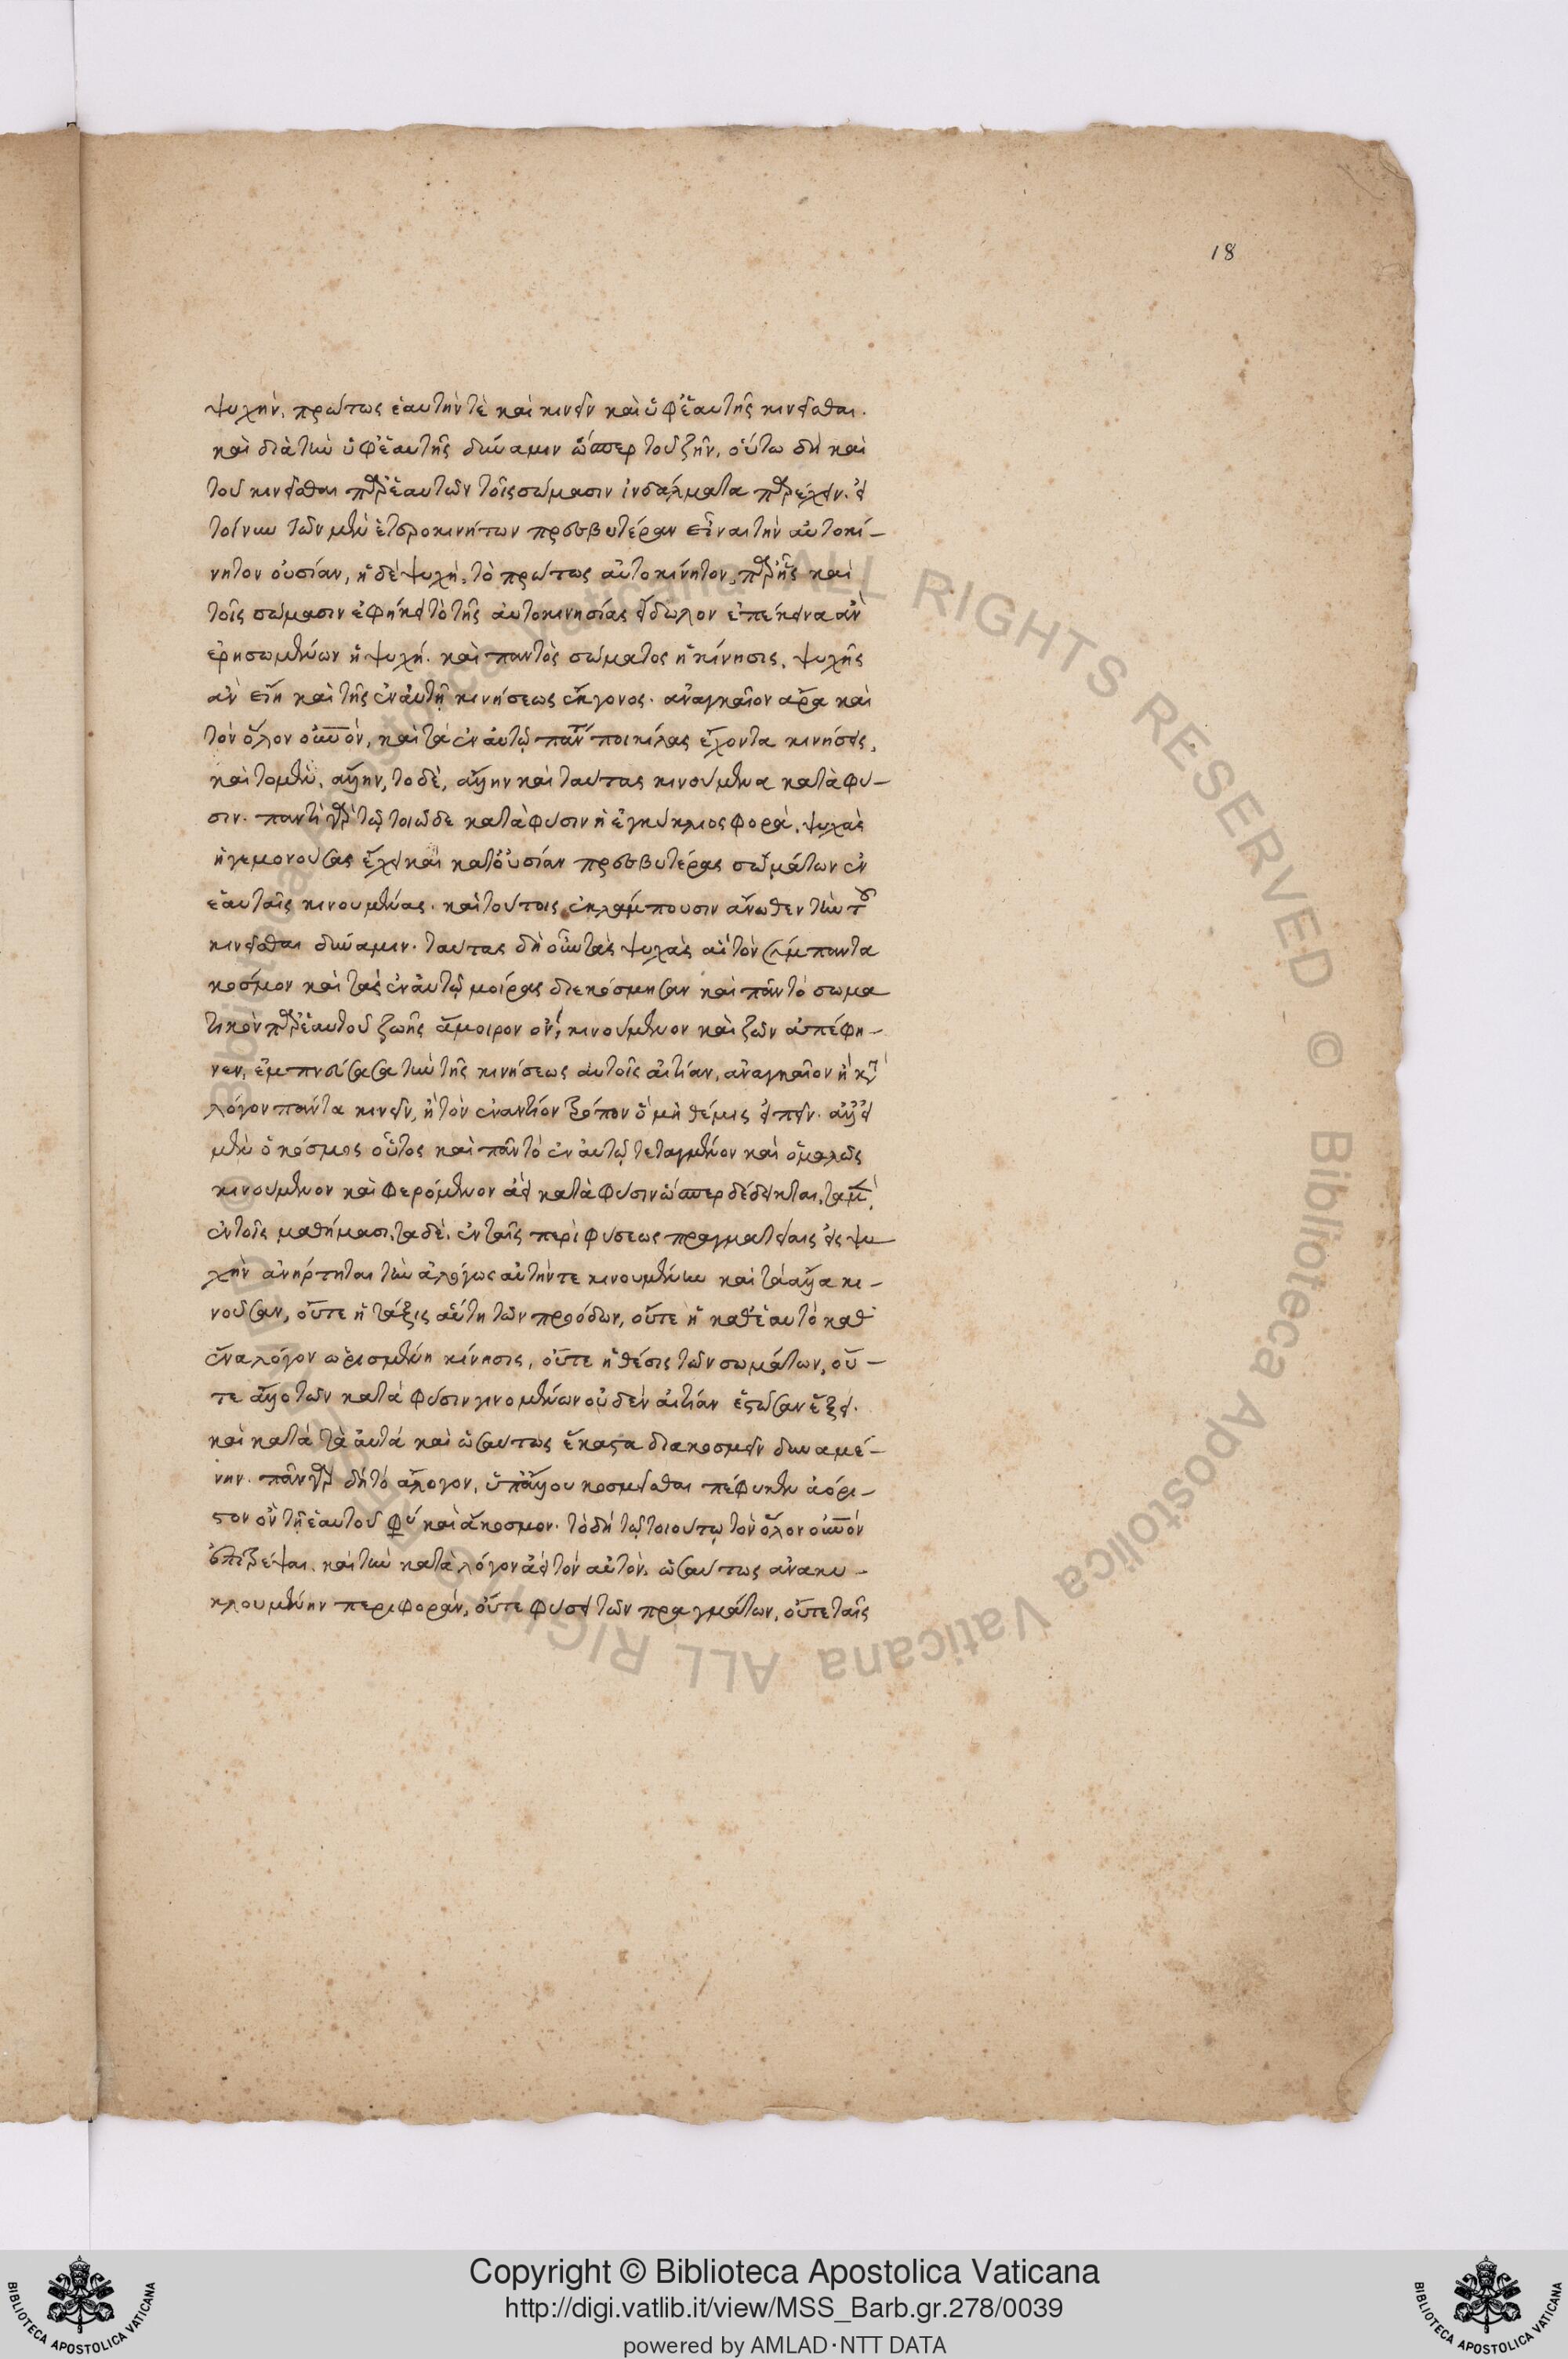 18
ψυχὴν, πρώτως ἑαυτήν τὲ καὶ κινεῖν καὶ ὑφ' ἑαυτῆς κινεῖσθαι.
καὶ διὰ τὴν ὑφ' ἑαυτῆς δύναμιν ὥσπερ τοῦ ζῆν, οὕτω δὴ καὶ
τοῦ κινεῖσθαι παρ' ἑαυτῶν τοῖς σώμασιν ἰνδάλματα παρέχειν. εἰ
τοίνυν τῶν μὲν ἑτεροκινήτων πρεσβυτέραν εἶναι τὴν αὐτοκί-
νητον οὐσίαν, ἡ δὲ ψυχὴ, τὸ πρώτως αὐτοκίνητον, παρ' ἧς καὶ
τοῖς σώμασιν ἐφήκει τὸ τῆς αὐτοκινησίας εἴδωλον ἐπέκεινα ἂν
εἴη σωμάτων ἡ ψυχή. καὶ παντὸς σώματος ἡ κίνησις, ψυχῆς
ἂν εἴη καὶ τῆς ἐν αὐτῇ κινήσεως ἔγγονος. ἀναγκαῖον ἄρα καὶ
τὸν ὅλον οὐρανὸν, καὶ τὰ ἐν αὐτῷ πάντα ποικίλας ἔχοντα κινήσεις,
καὶ τὸ μὲν, ἄλλην, τὸ δὲ, ἄλλην καὶ ταύτας κινούμενα κατὰ φύ-
σιν. παντὶ γὰρ τῷ τοιῷδε κατὰ φύσιν ἡ ἐγκύκλιος φορά. ψυχὰς
ἡγεμονούσας ἔχει καὶ κατ' οὐσίαν πρεσβυτέρας σωμάτων ἐν
ἑαυταῖς κινουμένας. καὶ τούτοις ἐκλάμπουσιν ἄνωθεν τὴν τοῦ
κινεῖσθαι δύναμιν. ταύτας δὴ οὖν τὰς ψυχὰς αἳ τὸν σύμπαντα
κόσμον καὶ τὰς ἐν αὐτῷ μοίρας διεκόσμησαν καὶ πᾶν τὸ σωμα
τικὸν παρ' ἑαυτοῦ ζωῆς ἄμοιρον ὂν, κινούμενον καὶ ζῶν ἀπέφη-
νεν, ἐμπνεύσασα τὴν τῆς κινήσεως αὐτοῖς αἰτίαν, ἀναγκαῖον ἢ κατὰ
λόγον πάντα κινεῖν, ἢ τὸν ἐναντίον τρόπον ὃ μὴ θέμις εἰπεῖν. ἀλλ' εἰ
μὲν ὁ κόσμος οὗτος καὶ πᾶν τὸ ἐν αὐτῷ τεταγμένον καὶ ὁμαλῶς
κινούμενον καὶ φερόμενον ἀεὶ κατὰ φύσιν ὥσπερ δέδεικται, τὰ μὲν,
ἐν τοῖς μαθήμασι, τὰ δὲ, ἐν ταῖς περὶ φύσεως πραγματείαις εἰς ψυ
χὴν ἀνήρτηται τὴν ἀλόγως αὐτήν τε κινουμένην καὶ τὰ ἄλλα κι-
νοῦσαν, οὔτε ἡ τάξις αὕτη τῶν προόδων, οὔτε ἡ καθ' ἑαυτὸ καθ'
ἕνα λόγον ὡρισμένη κίνησις, οὔτε ἡ θέσις τῶν σωμάτων, οὔ-
τε ἄλλο τῶν κατὰ φύσιν γινομένων οὐδὲν αἰτίαν ἑστῶσαν ἕξει.
καὶ κατὰ τὰ αὐτὰ καὶ ὡσαύτως ἕκαστα διακοσμεῖν δυναμέ-
νην. πᾶν γὰρ δὴ τὸ ἄλογον, ὑπ' ἄλλου κοσμεῖσθαι πέφυκεν ἀόρι-
στον ὂν τῇ ἑαυτοῦ φύσει καὶ ἄκοσμον. τὸ δὴ τῷ τοιούτῳ τὸν ὅλον οὐρανὸν
ἐπιτρέψαι, καὶ τὴν κατὰ λόγον ἀεὶ τὸν αὐτὸν, ὡσαύτως ἀνακυ-
κλουμένην περιφορὰν, οὔτε φύσει τῶν πραγμάτων, οὔτε ταῖς
© Biblioteca Apostolica Vaticana ALL RIGHTS RESERVED
Copyright © Biblioteca Apostolica Vaticana
http://digi.vatlib.it/view/MSS_Barb.gr.278/0039
powered by AMLAD·NTT DATA
BIBLIOTECA APOSTOLICA VATICANA
BIBLIOTECA APOSTOLICA VATICANA